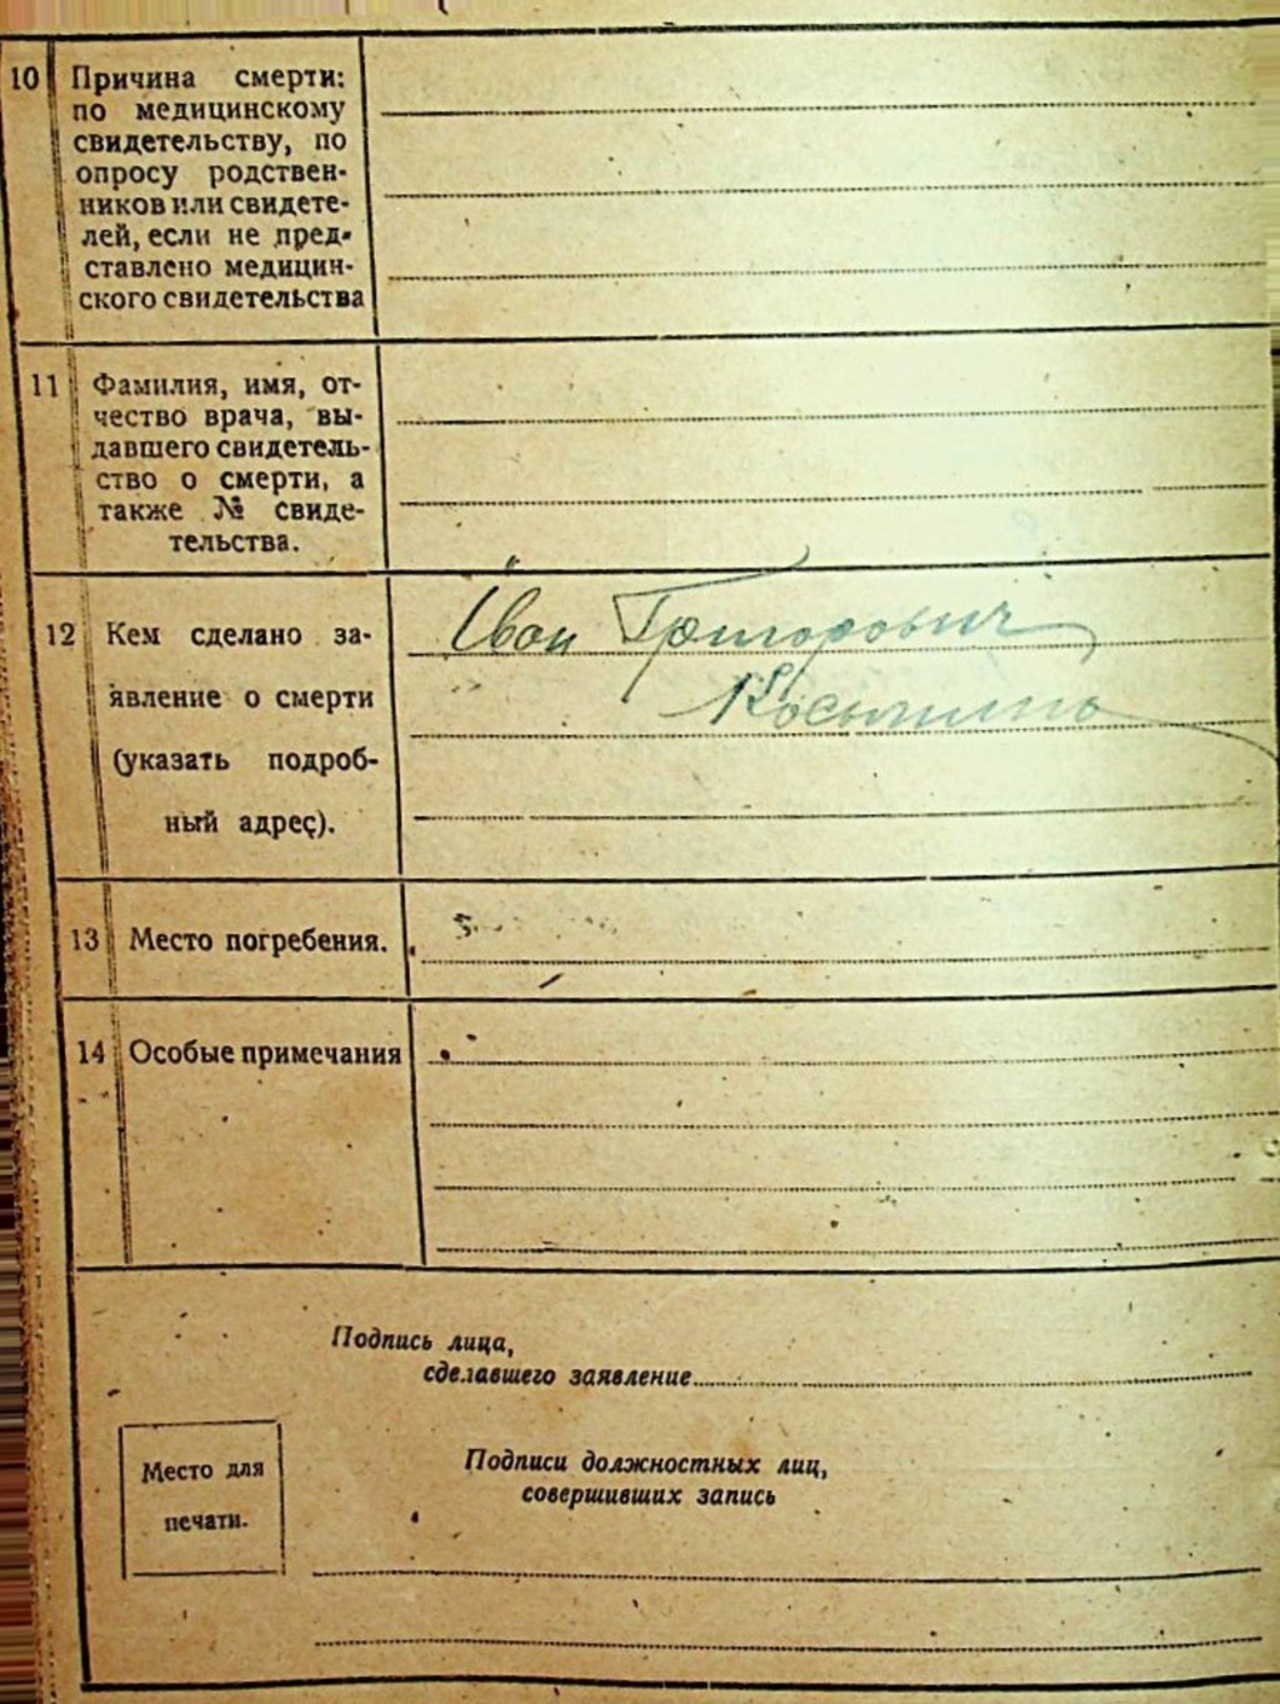 10 Причина смерти:
по медицинскому
свидетельству, по
опросу родствен-
ников или свидете-
лей, если не пред-
ставлено медицин-
ского свидетельства
11 Фамилия, имя, от-
чество врача, вы-
давшего свидетель-
ство о смерти, а
также № свиде-
тельства.
12 Кем сделано за-
явление о смерти
(указать подроб-
ный адрес).
Іван Григорович
13 Место погребения.
14 Особые примечания
Подпись лица,
сделавшего заявление
Место для
печати.
Подписи должностных лиц,
совершивших запись